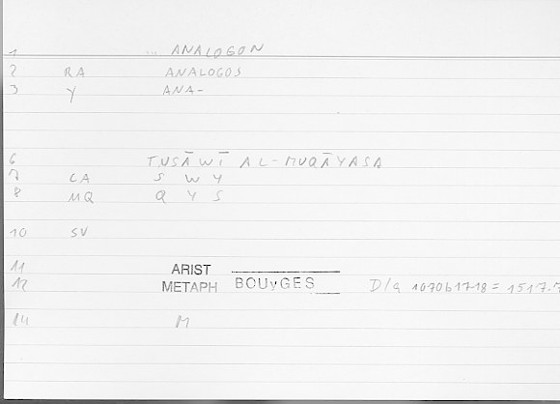 1 ... ANALOGON
2 RA ANALOGOS
3 Y ANA-
6 TUSĀWĪ AL-MUQĀYASA
7 CA S W Y
8 MQ Q Y S
10 SV
11 ARIST
12 METAPH BOUyGES D/a 1070b17-18 = 1517.7
14 M